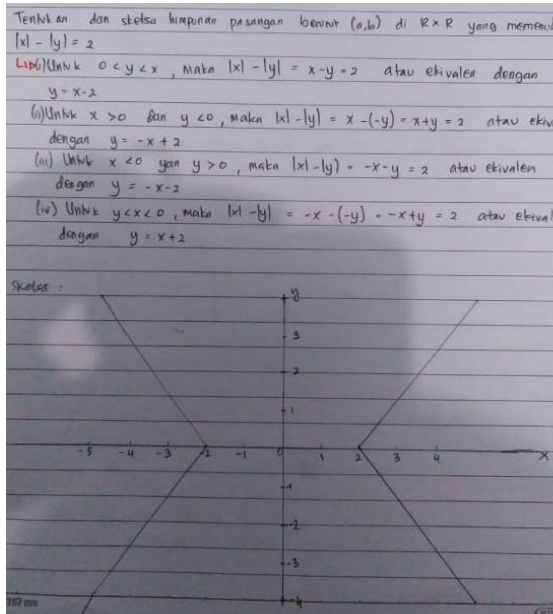 Tentukan dan sketsa himpunan pasangan berurut (a,b) di R×R yang
|x| - |y| = 2
(i) Untuk 0 < y < x, maka |x| - |y| = x-y = 2 atau ekivalen dengan
y = x-2
(ii) Untuk x >0 dan y <0, maka |x| - |y| = x -(-y) = x+y = 2 atau
dengan y = -x + 2
(iii) Untuk x <0 yan y >0, maka |x| - |y| = -x - y = 2 atau ekivalen
dengan y = -x-2
(iv) Untuk y<x<0, maka |x| - |y| = -x - (-y) = -x+y = 2 atau
dengan y = x+2
y
3
2
1
-5 -4 -3 -2 -1 0 1 2 3 4 x
-1
-2
-3
-4